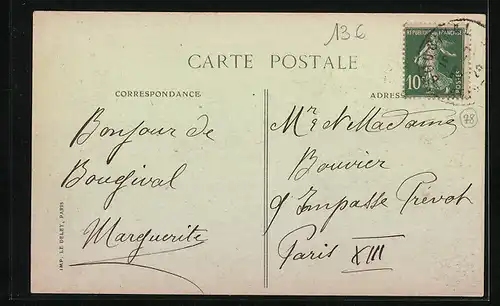 13 €
REPUBLIQUE FRANCAISE
10c
POSTES
CARTE POSTALE
CORRESPONDANCE
Bonjour de
Bougival
Marguerite
78
Mr & Madame
Bouvier
9 Impasse Prévot
Paris XIII
IMP. LE DELEY, PARIS